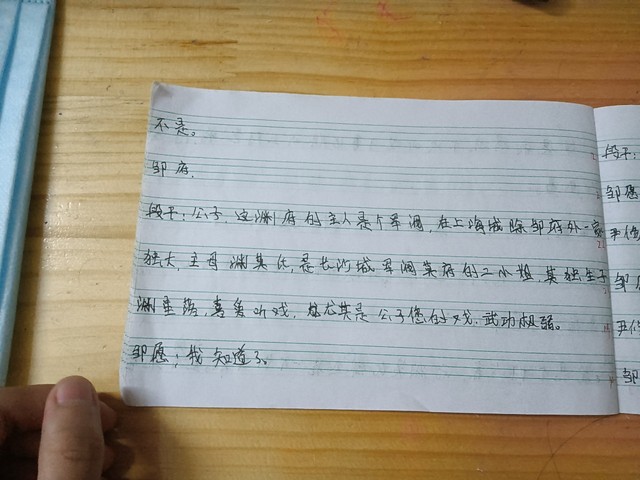 不是。
邹府.
段干：公子，这渊府的主人是个军阀，在上海城除邹府外一家
独大，主母渊莫氏，是长沙城军阀莫府的二小姐，其独生子
渊墨，喜爱听戏，尤其是公子您的戏，武功极弱。
邹愿：我知道了。
段干：
邹愿
尹修
邹
尹修
邹